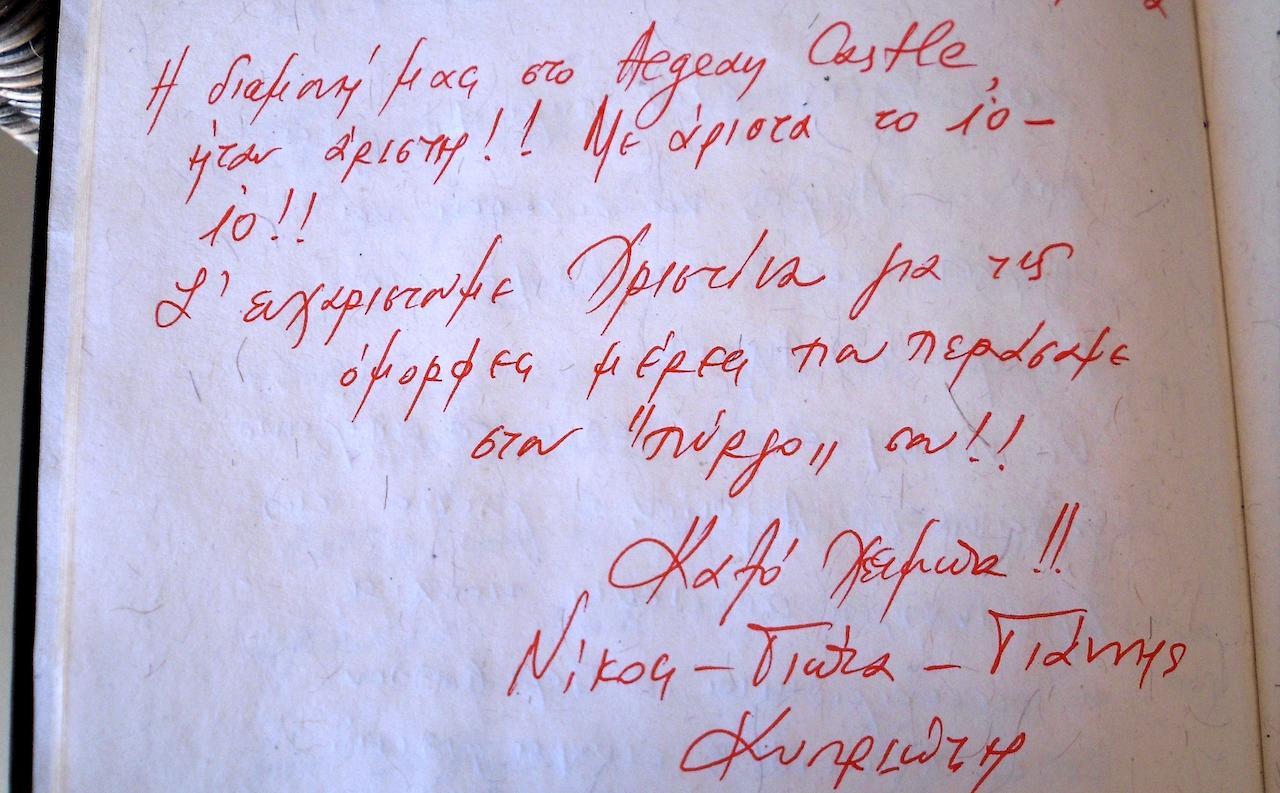 Η διαμονή μας στο Aegean Castle
ήταν άριστη!! Με άριστα το 10-
10!!
Σ' ευχαριστούμε Χριστίνα για τις
όμορφες μέρες που περάσαμε
στον "πύργο" σου!!
Καλό χειμώνα!!
Νίκος - Γιώτα - Γιάννης
Κυπριώτη